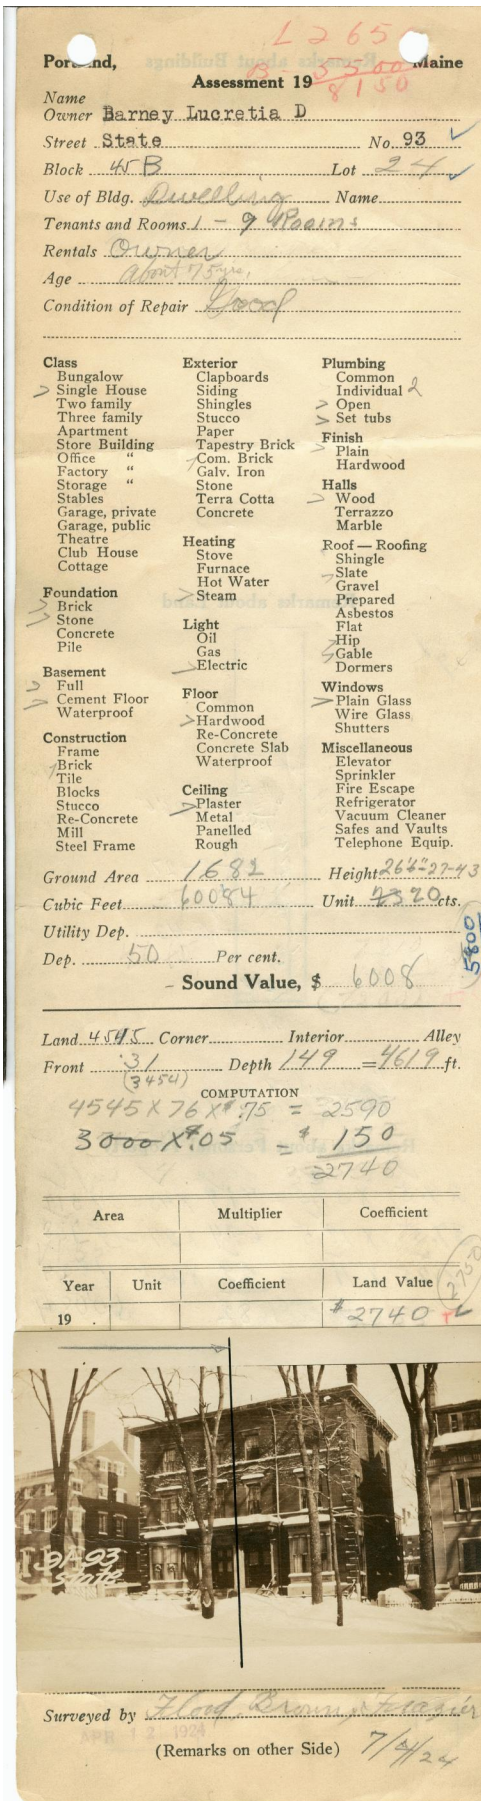 L 2650
Portland, Maine
B - 5500
Assessment 19
8150
Name
Owner Barney Lucretia D
Street State No. 93
Block 45 B Lot 24
Use of Bldg. Dwelling Name
Tenants and Rooms 1 - 9 Rooms
Rentals Owner
Age About 75 yrs.
Condition of Repair Good
Class
Bungalow
> Single House
Two family
Three family
Apartment
Store Building
Office "
Factory "
Storage "
Stables
Garage, private
Garage, public
Theatre
Club House
Cottage
Foundation
> Brick
> Stone
Concrete
Pile
Basement
> Full
> Cement Floor
Waterproof
Construction
Frame
Brick
Tile
Blocks
Stucco
Re-Concrete
Mill
Steel Frame
Exterior
Clapboards
Siding
Shingles
Stucco
Paper
Tapestry Brick
Com. Brick
Galv. Iron
Stone
Terra Cotta
Concrete
Heating
Stove
Furnace
Hot Water
> Steam
Light
Oil
Gas
> Electric
Floor
Common
> Hardwood
Re-Concrete
Concrete Slab
Waterproof
Ceiling
> Plaster
Metal
Panelled
Rough
Plumbing
Common
Individual 2
> Open
> Set tubs
Finish
> Plain
Hardwood
Halls
> Wood
Terrazzo
Marble
Roof — Roofing
Shingle
Slate
Gravel
Prepared
Asbestos
Flat
Hip
Gable
Dormers
Windows
> Plain Glass
Wire Glass
Shutters
Miscellaneous
Elevator
Sprinkler
Fire Escape
Refrigerator
Vacuum Cleaner
Safes and Vaults
Telephone Equip.
Ground Area 1682 Height
Cubic Feet 60084 Unit 20 cts.
Utility Dep.
5800
Dep. 50 Per cent.
- Sound Value, $ 6008
Land 4545 Corner Interior Alley
Front 31 Depth 149 = 4619 ft.
(3454)
COMPUTATION
4545 X 76 X $.75 = 2590
3000 X $.05 = $ 150
2740
Area Multiplier Coefficient
2750
Year Unit Coefficient Land Value
19 $ 2740
91-93
State
Surveyed by Flood, Brown, Frazier
APR 12 1924
(Remarks on other Side) 7/7/24